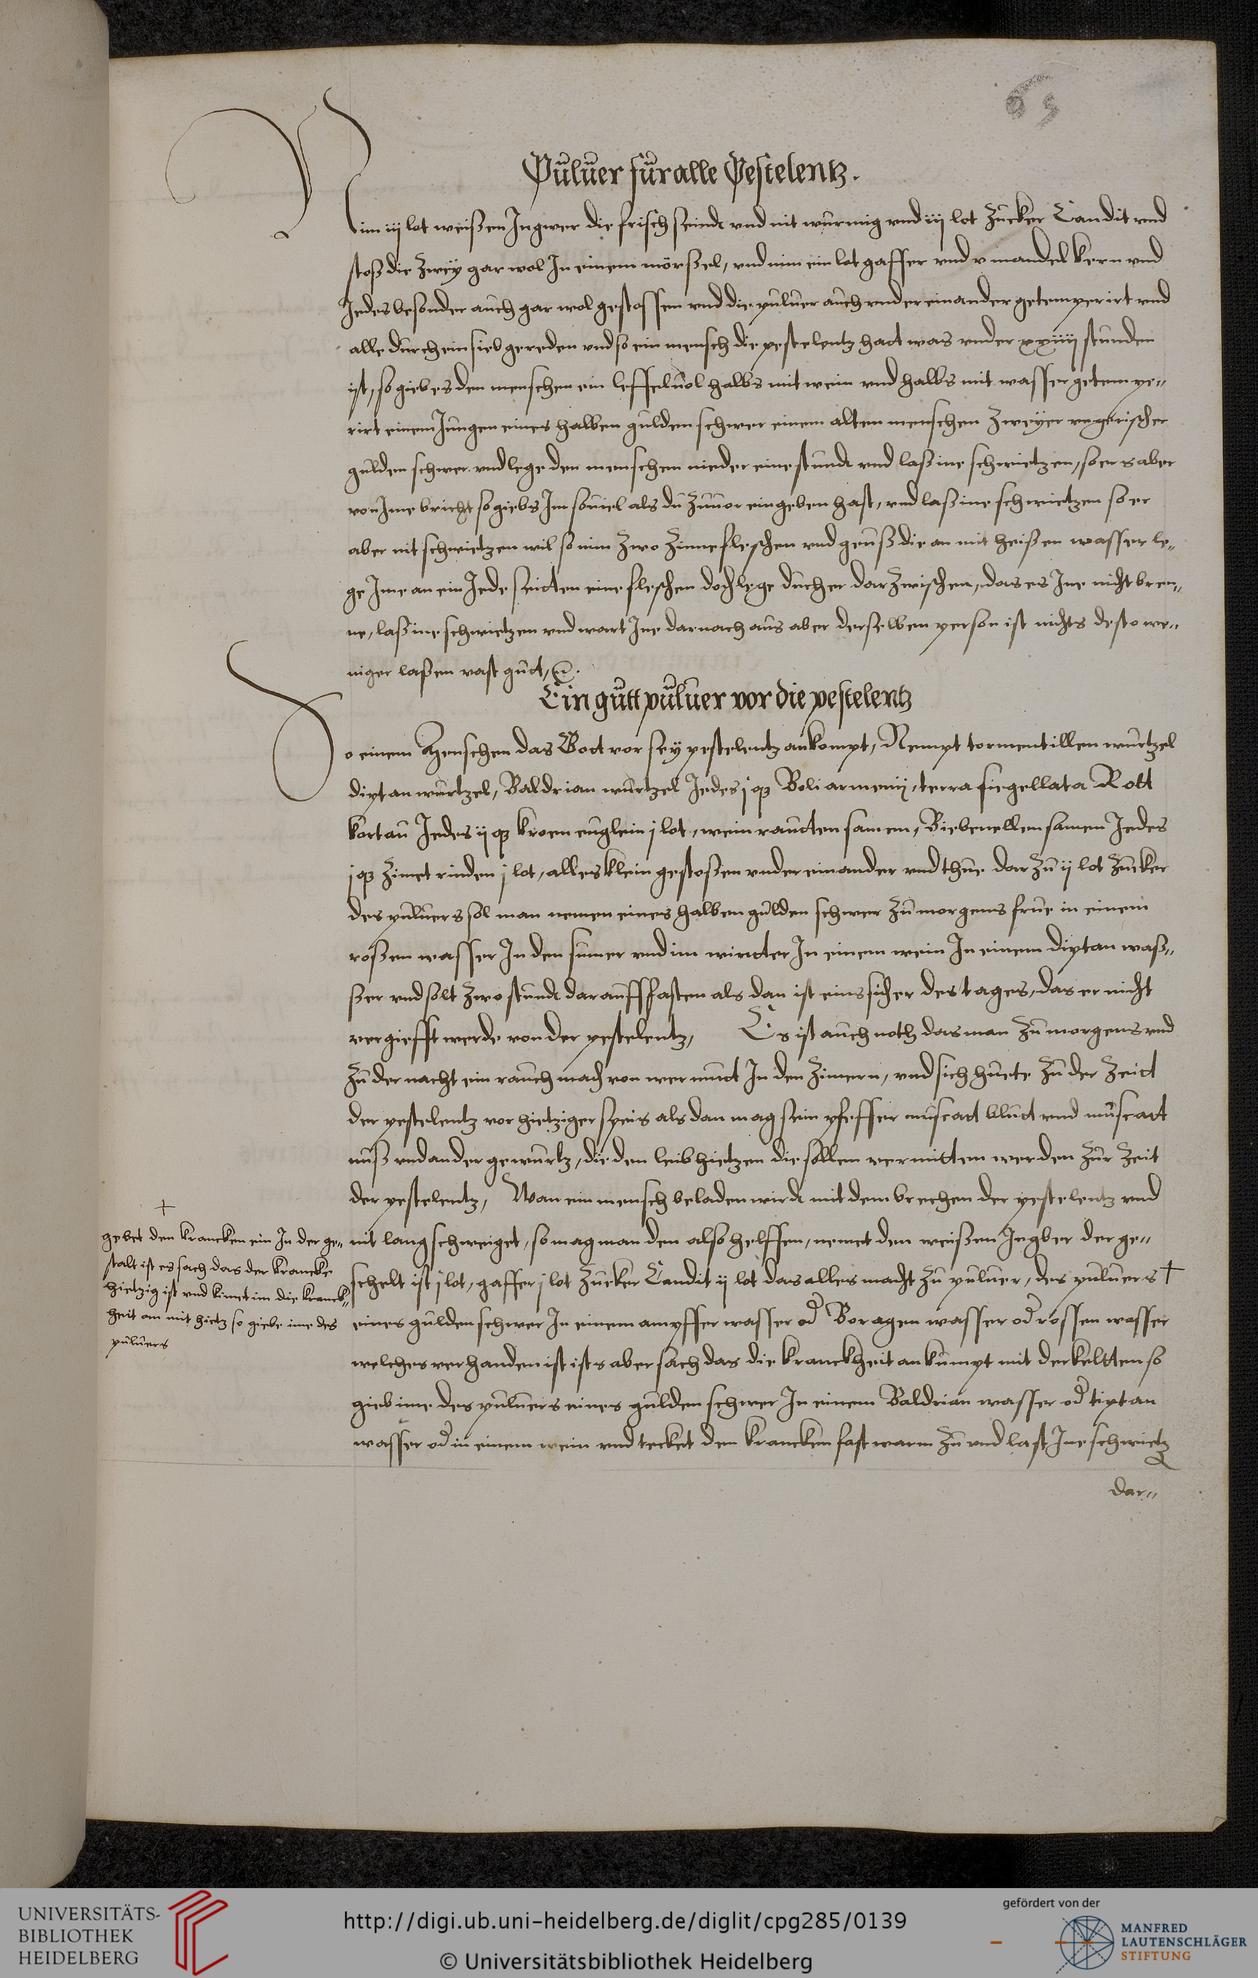 65
Puluer fur alle Pestelentz.
Nim iij lot weißen Ingwer die frisch seindt vnd nit wurmig vnd iij lot zucker Candit vnd
stoß die zwey gar wol In einem mörßel, vnd nim ein lot gaffer vnd v mandel kern vnd
Jedes besonder auch gar wol gestossen vnd die puluer auch vnder einander getemperirt vnd
alle durch ein sieb gereden vnd so ein mensch die pestelentz hatt was vnder xxiiij stunden
ist, so gieb es den menschen ein leffeluol halbs mit wein vnd halbs mit wasser getempe„
rirt einem Jungen eines halben gulden schwer einem alten menschen zweyer vngerischer
gulden schwer. vnd lege den menschen nieder eine stundt vnd laß ine schwietzen, so er s aber
von Ime bricht so giebs Im souiel als du zuuor eingeben hast, vnd laß ine schwietzen so er
aber nit schwietzen wil so nim zwo zinne fleschen vnd geuß die an mit heißen wasser le„
ge Ime an ein Jede seitten eine fleschen doch lege ducher darzwischen, das es Ine nicht bren„
ne, laß ine schwietzen vnd wart Ine darnach aus aber derselben person ist nichts desto we„
niger laßen vast gutt,
Ein gutt puluer vor die pestelentz
So einem Menschen das Gott vor sey pestelentz ankompt, Nempt tormentillen wurtzel
diptan wurtzel, Baldrian wurtzel Jedes j qz Boli armenij, terra siegellata Rott
kortau Jedes ij qz kroen euglein j lot, weinrautten samen, Biebenellen samen Jedes
j qz zimet rinden j lot, alles klein gestoßen vnder einander vnd thue dar zu ij lot zucker
des puluers sol man nemen eines halben gulden schwer zu morgens frue in einem
roßen wasser In den sumer vnd im wintter In einem wein In einem diptan waß„
ßer vnd solt zwo stundt darauff fasten als dan ist eins sicher des tages, das er nicht
vergiefft werde von der pestelentz, Es ist auch noth das man zu morgens vnd
zu der nacht ein rauch mach von wermutt In den zimern, vnd sich huete zu der zeitt
der pestelentz vor hietziger speis als dan mag sein pfeffer muscatt blutt vnd muscatt
nuß vnd ander gewurtz, die den leib hietzen die sollen vermitten werden zur zeit
der pestelentz, Wan ein mensch beladen wirdt mit dem brechen der pestelentz vnd
nit lang schweiget, so mag man den also helffen, nemet den weißen Ingber der ge„
schelt ist j lot, gaffer j lot zucker Candit ij lot das alles macht zu puluer, des puluers †
eines gulden schwer In einem ampffer wasser od Boragen wasser od rossen wasser
welches verhanden ist ists aber sach das die kranckheit ankumpt mit der keltten so
gieb ime des puluers eines gulden schwer In einem Baldrian wasser od diptan
wasser od in einem wein vnd decket den krancken fast warm zu vnd last Ine schwietz
dar„
†
gebet den krancken ein In der ge„
stalt ist es sach das der krancke
hietzig ist vnd kimet im die kranck„
heit an mit hietz so giebe ime des
puluers
UNIVERSITÄTS-
BIBLIOTHEK
HEIDELBERG
http://digi.ub.uni-heidelberg.de/diglit/cpg285/0139
© Universitätsbibliothek Heidelberg
gefördert von der
MANFRED
LAUTENSCHLÄGER
STIFTUNG